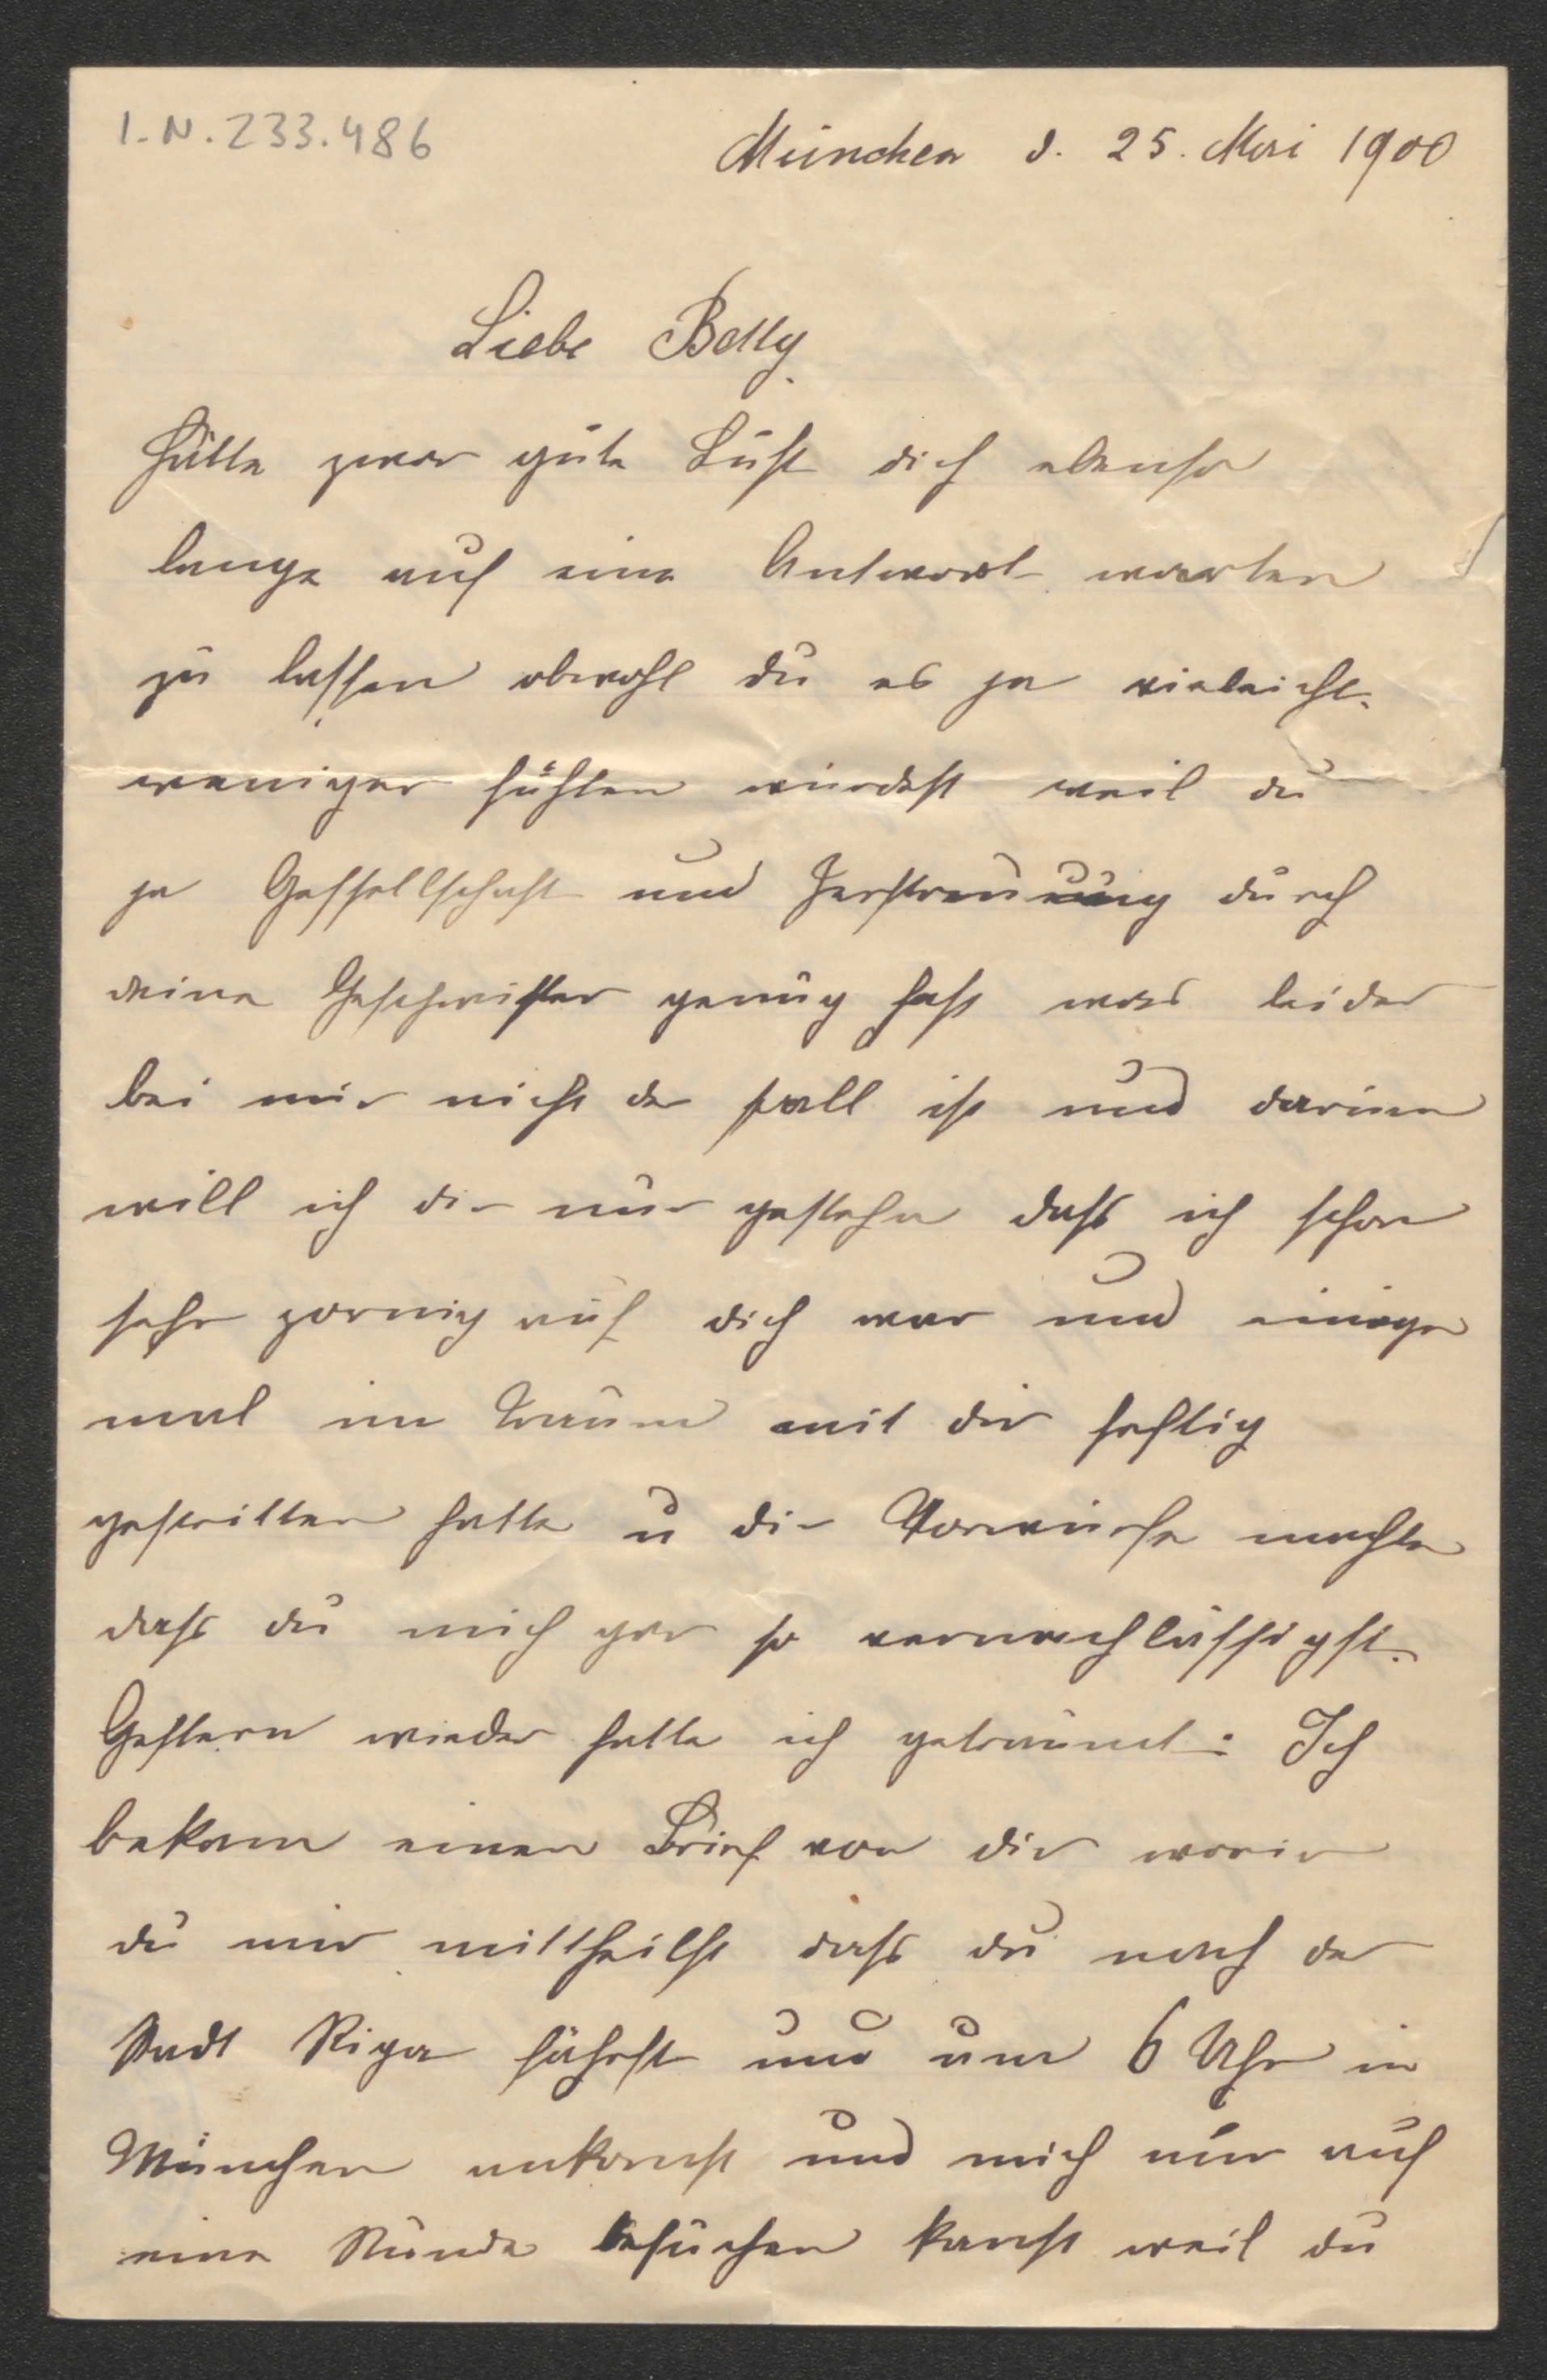 I.N.233.486
München d. 25. Mai 1900
Liebe Betty
Hätte zwar gute Lust dich ebenso
lange auf eine Antwort warten
zu lassen obwohl du es ja vieleicht
weniger fühlen würdest weil du
ja Gessellschaft und Zerstreuung durch
deine Geschwister genug hast was leider
bei mir nicht der fall ist und darum
will ich dir nur gestehn dass ich schon
sehr zornig auf dich war und einige
mal im Traum mit dir heftig
gestritten hatte u dir Vorwürfe machte
dass du mich gar so vernachlässigst.
Gestern wieder hatte ich geträumt: Ich
bekam einen Brief von dir worin
du mir mittheilst dass du nach der
Stadt Riga fährst und um 6 Uhr in
München ankomst und mich nur auf
eine Stunde besuchen kanst weil du